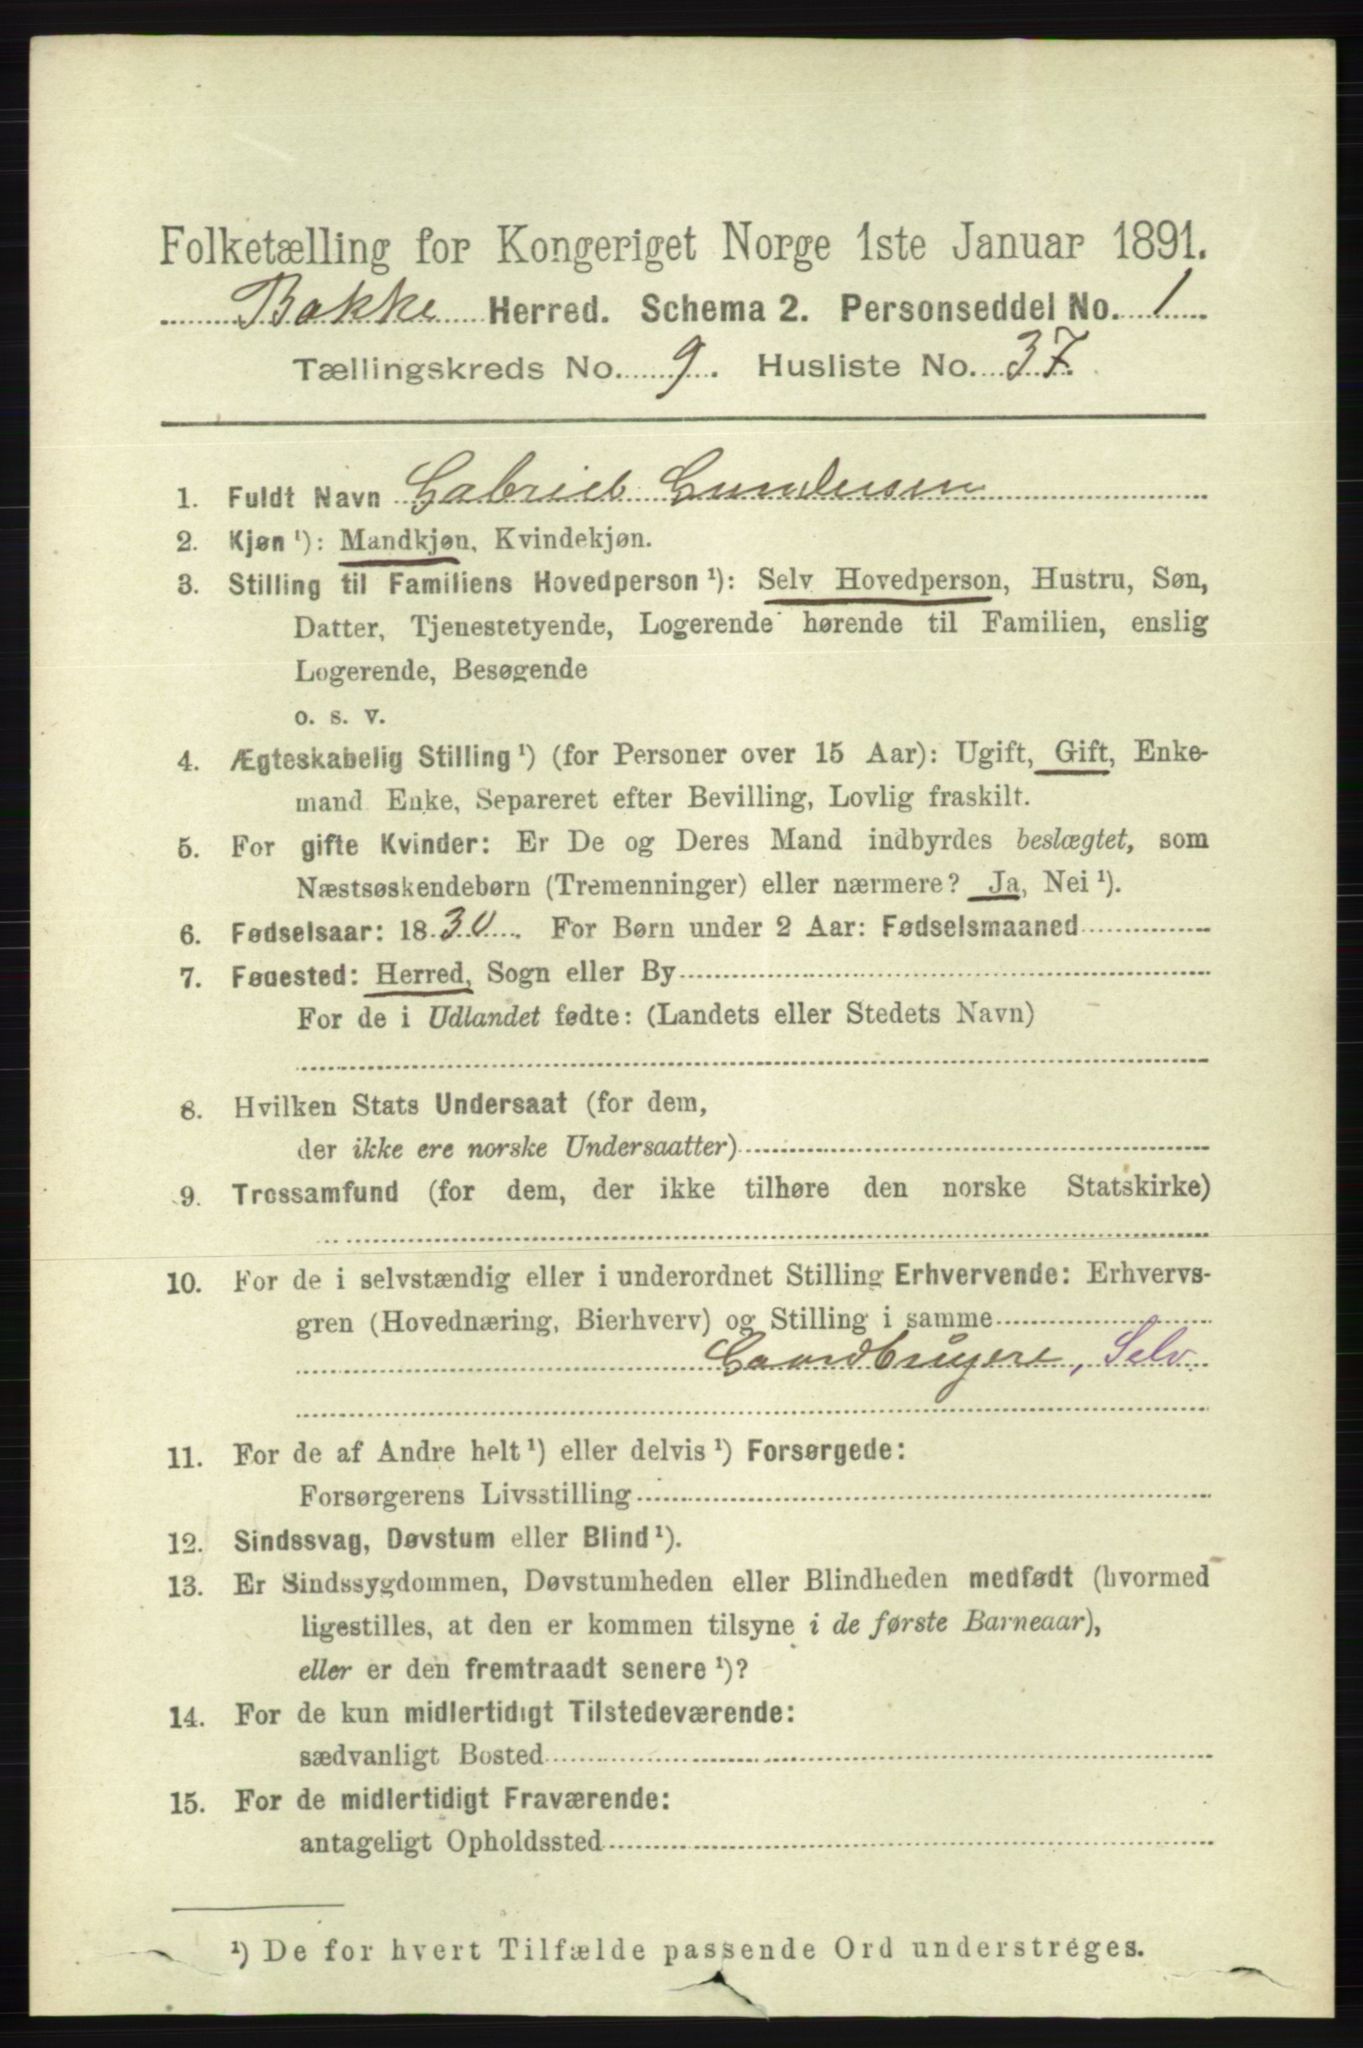 Folketælling for Kongeriget Norge 1ste Januar 1891.
Bakke Herred. Schema 2. Personseddel No. 1
Tællingskreds No. 9. Husliste No. 37.
1. Fuldt Navn Gabriel Gundersen
2. Kjøn ¹): Mandkjøn, Kvindekjøn.
3. Stilling til Familiens Hovedperson ¹): Selv Hovedperson, Hustru, Søn,
Datter, Tjenestetyende, Logerende hørende til Familien, enslig
Logerende, Besøgende
o. s. v.
4. Ægteskabelig Stilling ¹) (for Personer over 15 Aar): Ugift, Gift, Enke-
mand Enke, Separeret efter Bevilling, Lovlig fraskilt.
5. For gifte Kvinder: Er De og Deres Mand indbyrdes beslægtet, som
Næstsøskendebørn (Tremenninger) eller nærmere? Ja, Nei ¹).
6. Fødselsaar: 1830. For Børn under 2 Aar: Fødselsmaaned
7. Føuested: Herred, Sogn eller By
For de i Udlandet fødte: (Landets eller Stedets Navn)
8. Hvilken Stats Undersaat (for dem,
der ikke ere norske Undersaatter)
9. Trossamfund (for dem, der ikke tilhøre den norske Statskirke)
10. For de i selvstændig eller i underordnet Stilling Erhvervende: Erhvervs-
gren (Hovednæring, Bierhverv) og Stilling i samme
Gaardbrugere, Selv.
11. For de af Andre helt ¹) eller delvis ¹) Forsørgede:
Forsørgerens Livsstilling
12. Sindssvag, Døvstum eller Blind ¹).
13. Er Sindssygdommen, Døvstumheden eller Blindheden medfødt (hvormed
ligestilles, at den er kommen tilsyne i de første Barneaar),
eller er den fremtraadt senere ¹)?
14. For de kun midlertidigt Tilstedeværende:
sædvanligt Bosted
15. For de midlertidigt Fraværende:
antageligt Opholdssted
¹) De for hvert Tilfælde passende Ord understreges.